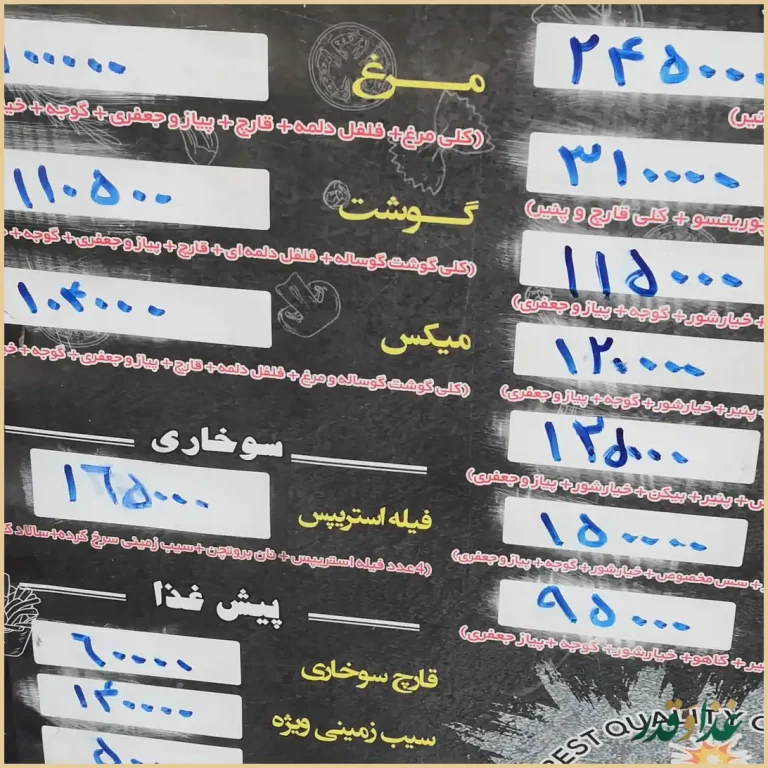 ۲۴۵۰۰۰
پنیر)
۳۱۰۰۰۰
+ کلی قارچ و پنیر)
۱۱۵۰۰۰
+ خیارشور + گوجه + پیاز و جعفری)
۱۲۰۰۰۰
+ پنیر + خیارشور + گوجه + پیاز و جعفری)
۱۳۵۰۰۰
+ پنیر + بیکن + خیارشور + پیاز و جعفری)
۱۵۰۰۰۰
+ سس مخصوص + خیارشور + گوجه + پیاز و جعفری)
۹۵۰۰۰
+ کاهو + خیارشور + گوجه + پیاز جعفری)
BEST QUALITY
غذا و قدر
مرغ
۱۰۰۰۰۰
(کلی مرغ + فلفل دلمه + قارچ + پیاز و جعفری + گوجه +
گوشت
۱۱۰۵۰۰
(کلی گوشت گوساله + فلفل دلمه ای + قارچ + پیاز و جعفری + گوجه +
میکس
۱۰۴۰۰۰
(کلی گوشت گوساله و مرغ + فلفل دلمه + قارچ + پیاز و جعفری + گوجه +
سوخاری
فیله استریپس ۱۶۵۰۰۰
(4عدد فیله استریپس + نان بروتچن + سیب زمینی سرخ کرده + سالاد
پیش غذا
قارچ سوخاری ۶۰۰۰۰
سیب زمینی ویژه ۱۴۰۰۰۰